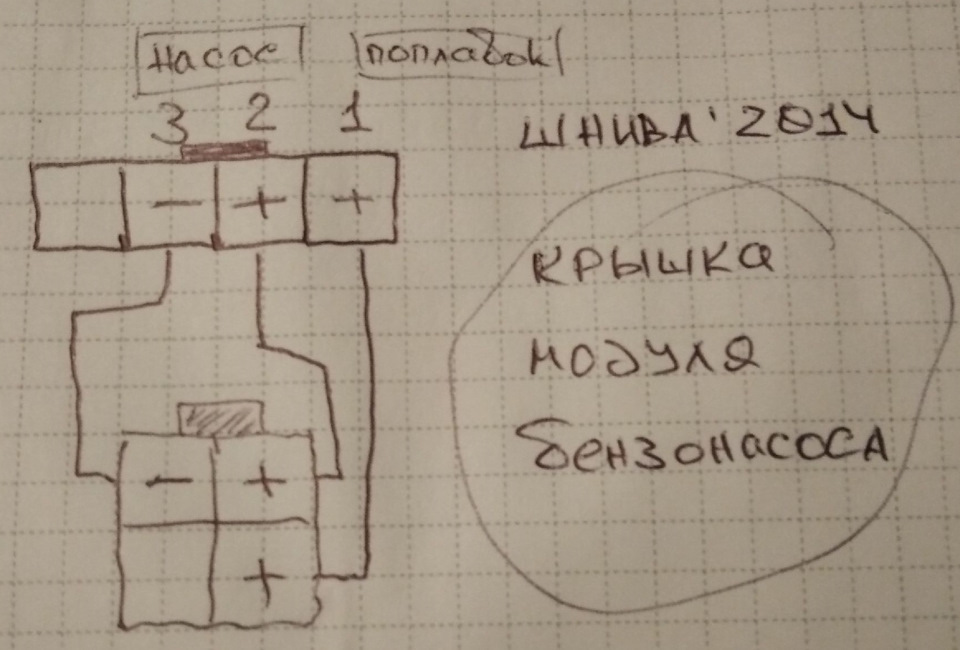 насос поплавок
3 2 1
ШНИВА' 2014
− + +
крышка
модуля
− +
бензонасоса
+